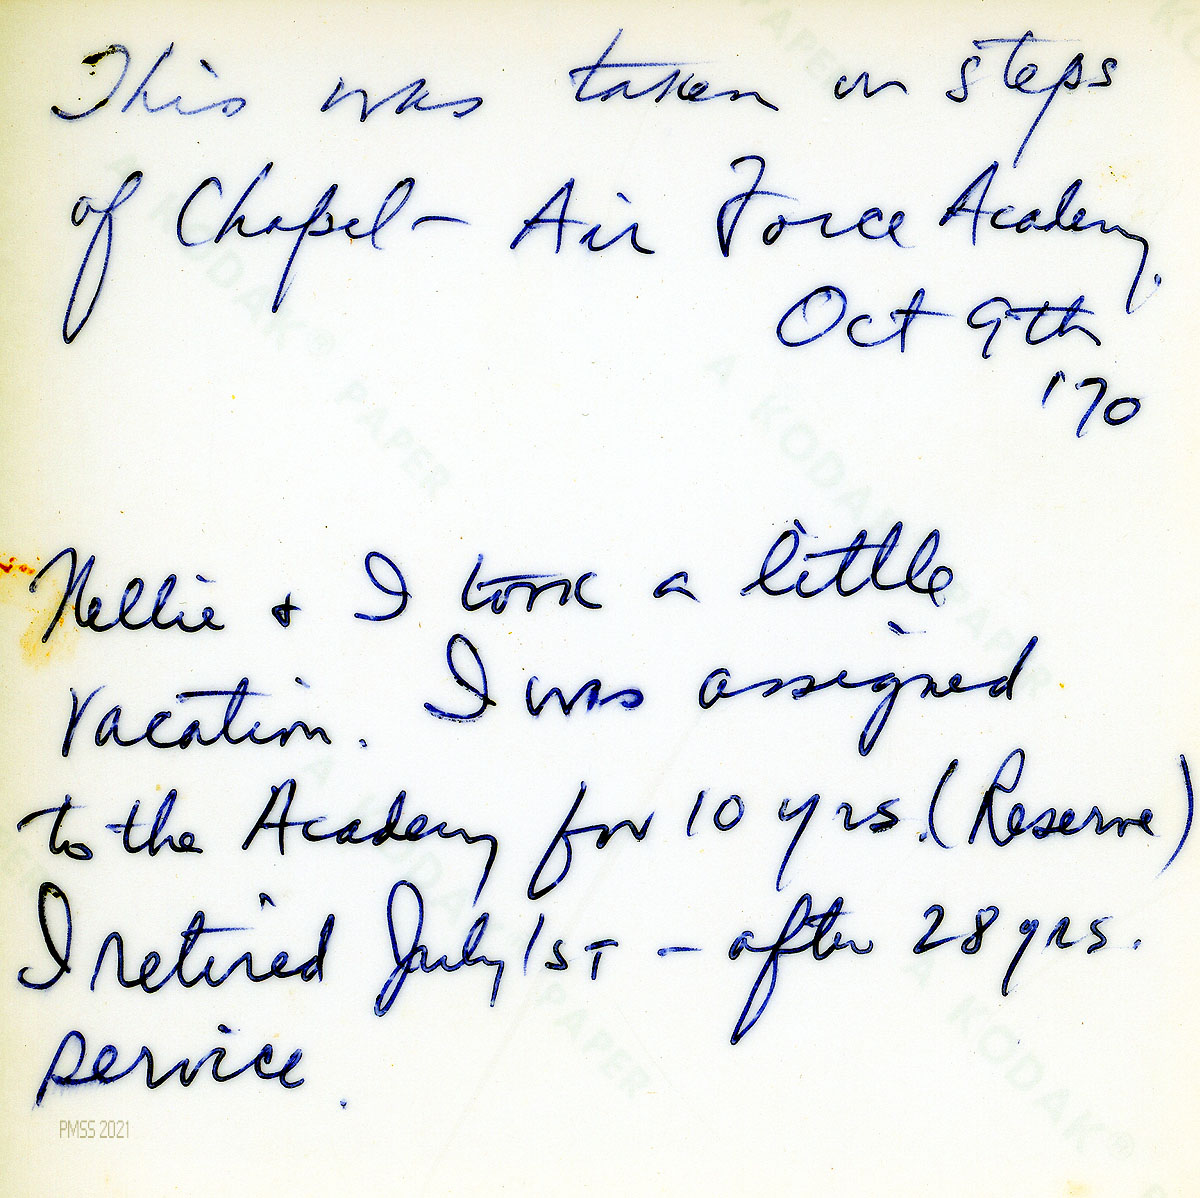 This was taken on steps
of Chapel - Air Force Academy.
Oct 9th
'70
Nellie + I took a little
vacation. I was assigned
to the Academy for 10 yrs. (Reserve)
I retired July 1st - after 28 yrs.
service.
PMSS 2021
A KODAK® PAPER
A KODAK PAPER
A KODAK PAPER
A KODAK®